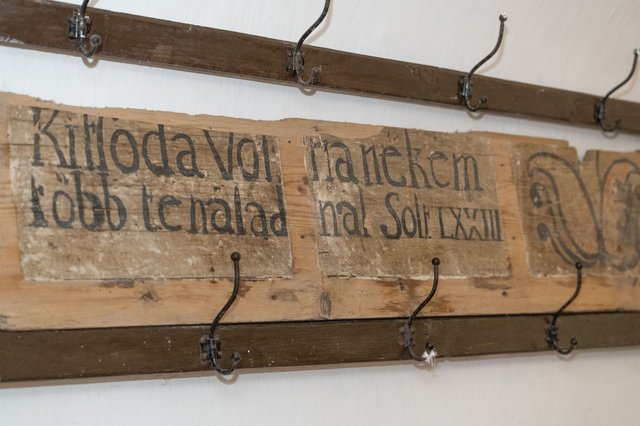 Kitsoda Vol, na nekem
több tenálad nál Solt LXXIII